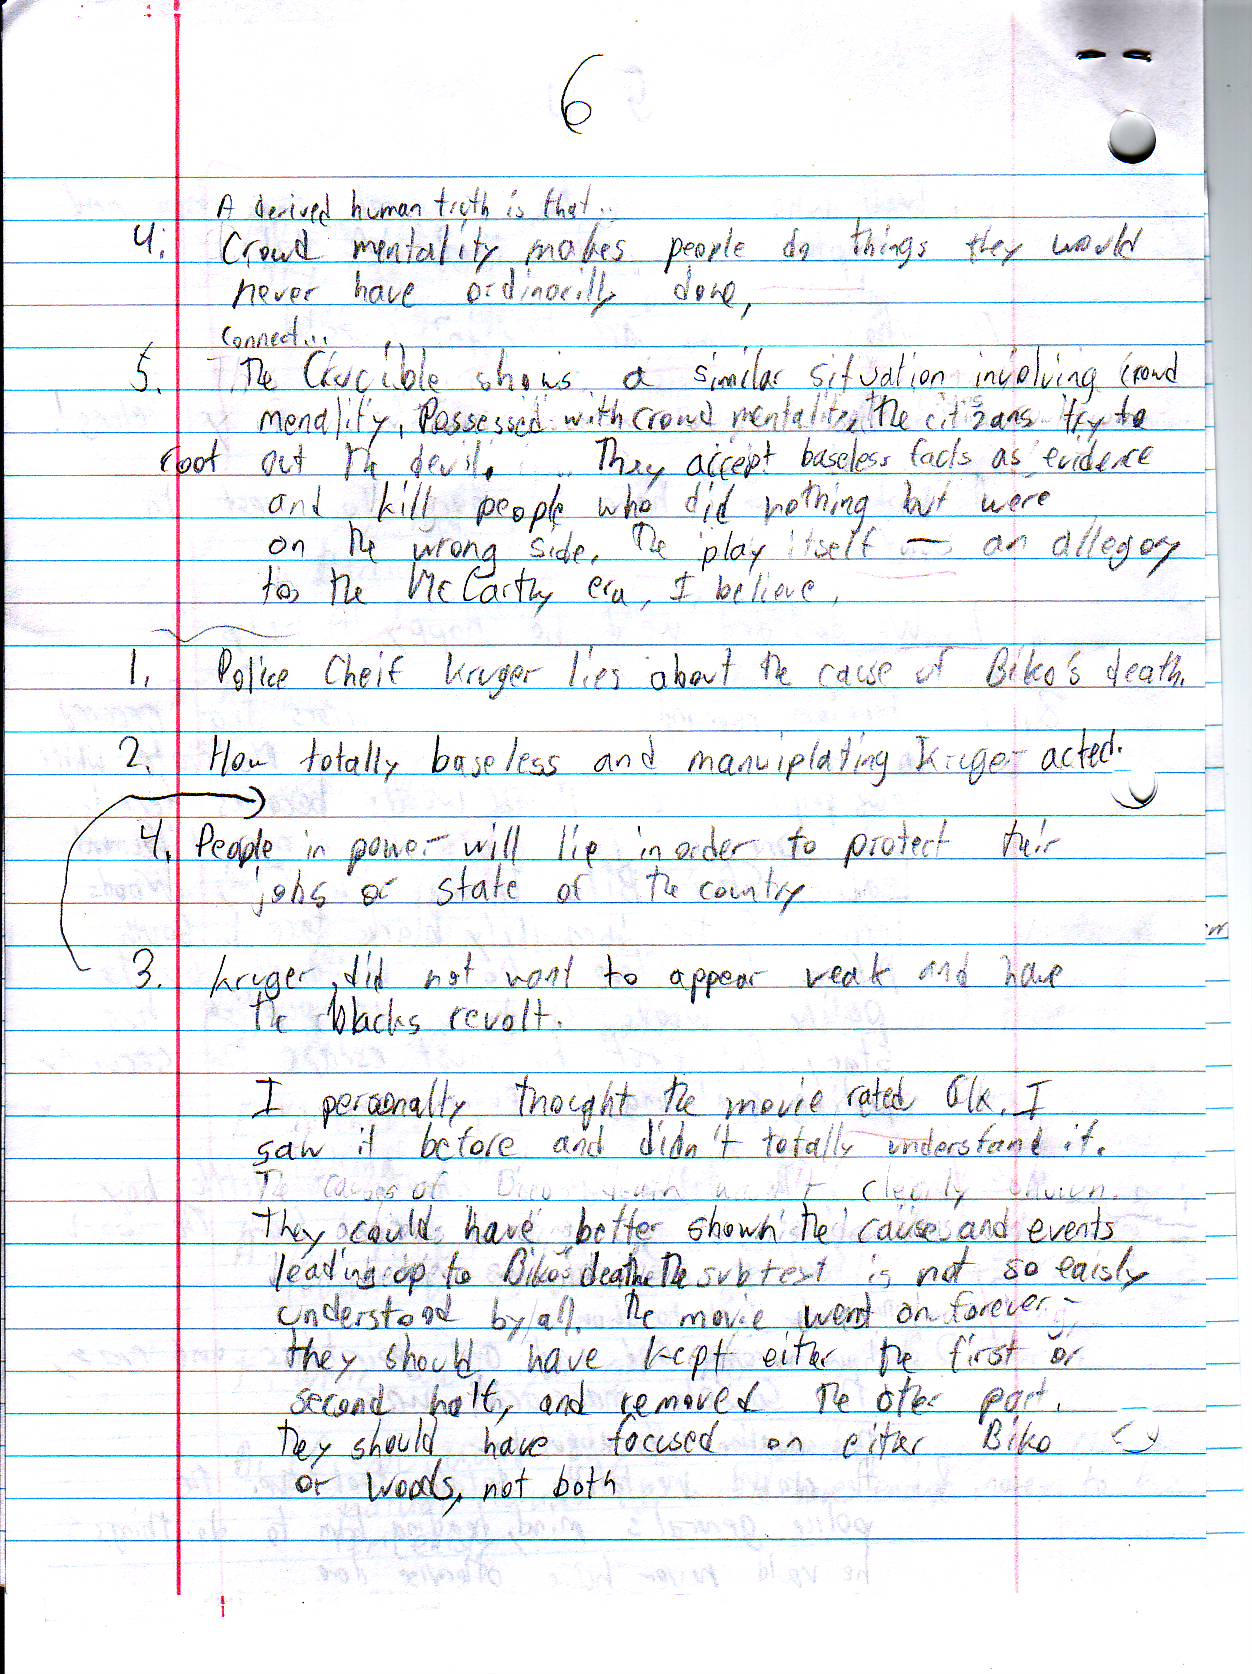 6
A derived human truth is that...
4. Crowd mentality makes people do things they would
never have ordinarilly done,
Connect...
5. The Crucible shows a similar situation involving crowd
menality. Possessed with crowd mentality, the citizans try to
root out the devil. They accept baseless facts as evidence
and kill people who did nothing but were
on the wrong side. The play itself — an allegory
to the McCarthy era, I believe.
1. Police Cheif Kruger lies about the cause of Biko's death.
2. How totally baseless and manuiplating Kruger acted.
4. People in power will lie in order to protect their
jobs or state of the country
3. Kruger did not want to appear weak and have
the blacks revolt.
I personally thought the movie rated Ok. I
saw it before and didn't totally understand it.
The causes of clearly
They could have better shown the cause and events
leading up to Biko's death. The subtext is not so eaisly
understood by all. The movie went on forever -
they should have kept either the first or
second half, and removed the other part.
they should have focused on either Biko
or Woods, not both